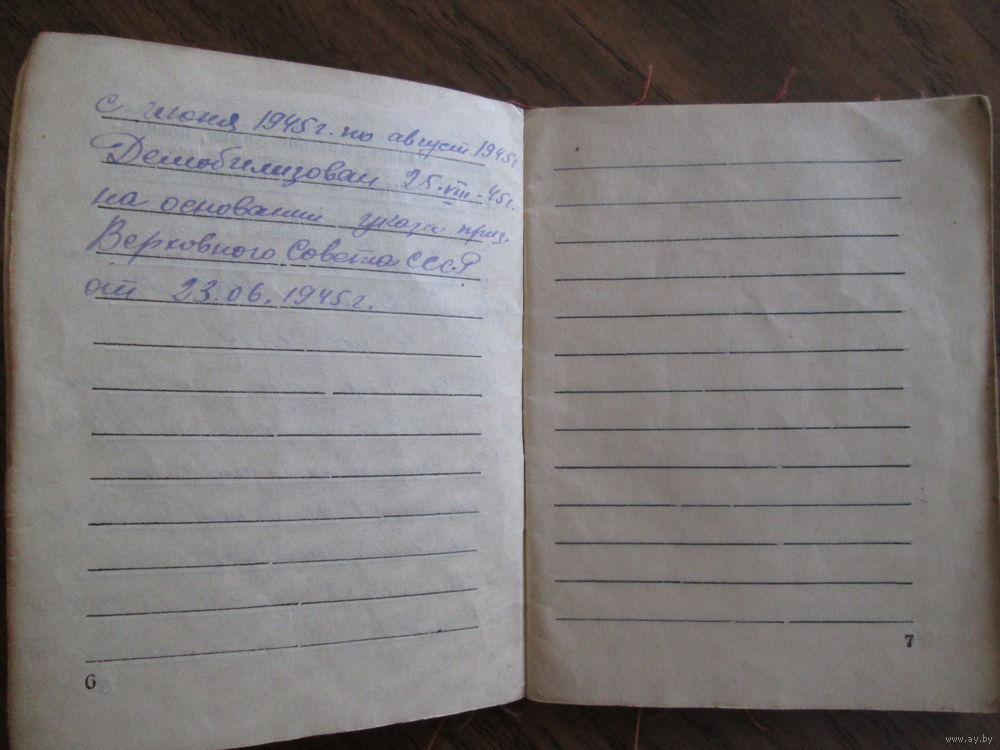 с июня 1945 г. по август 1945 г.
Демобилизован 25.VIII-45 г.
на основании указа през.
Верховного Совета СССР
от 23.06.1945 г.
6
7
www.ay.by